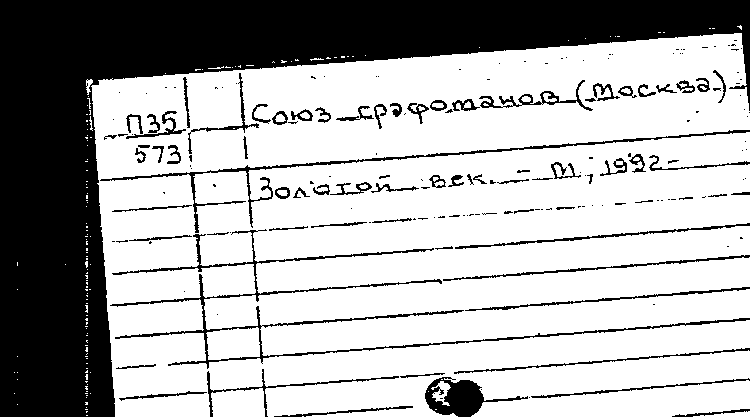 П35 Союз графоманов (Москва)
573
Золотой век. - М, 1992-